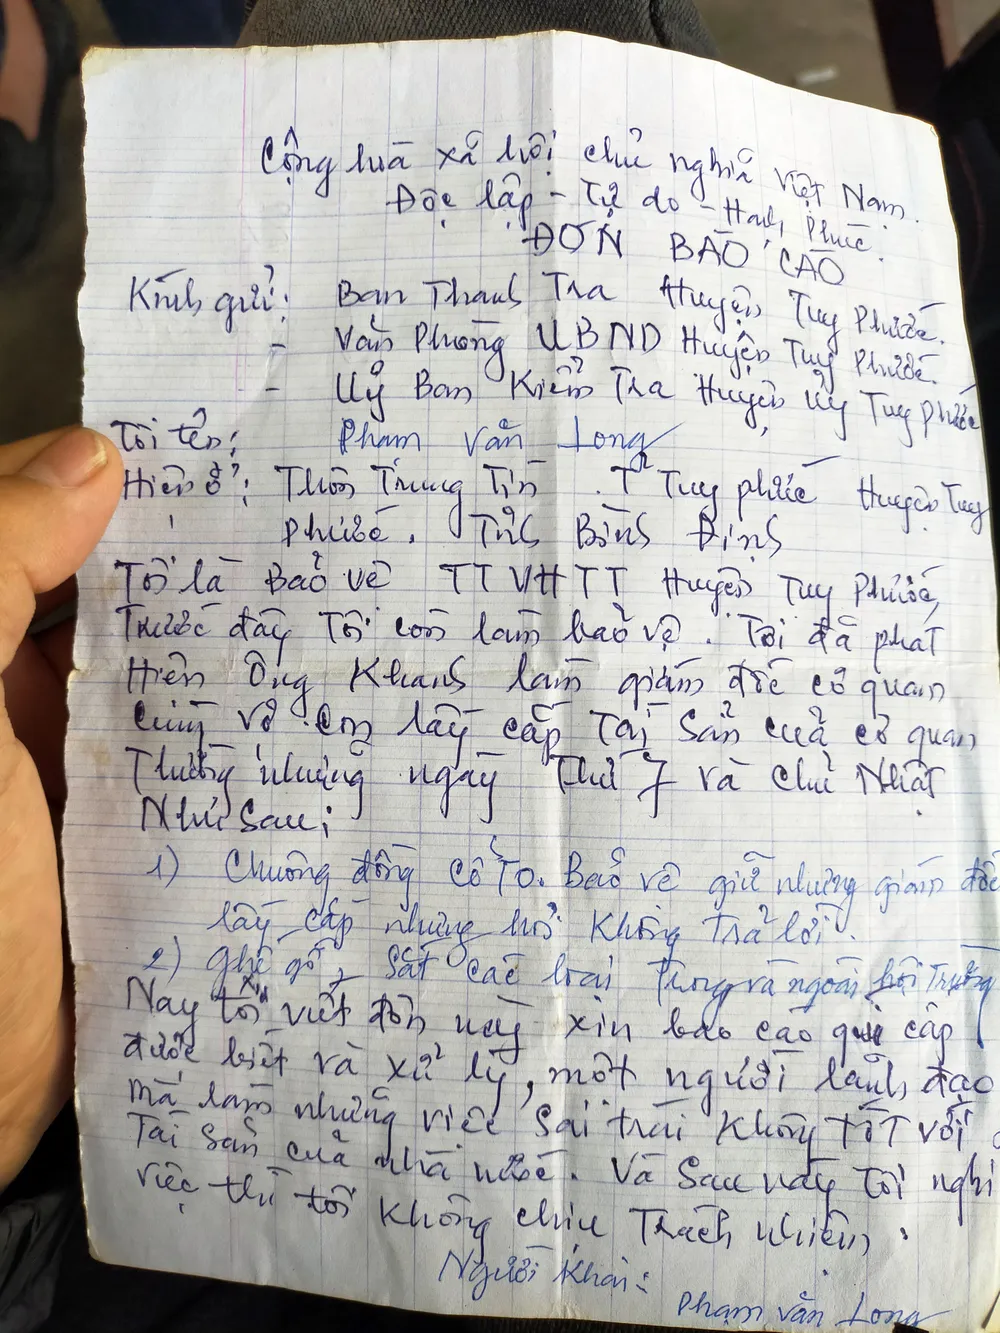 Cộng hoà xã hội chủ nghĩa Việt Nam.
Độc lập - Tự do - Hạnh Phúc.
ĐƠN BÁO CÁO
Kính gửi: Ban Thanh Tra Huyện Tuy Phước.
- Văn Phòng UBND Huyện Tuy Phước.
- Uỷ Ban Kiểm Tra Huyện Uỷ Tuy Phước
Tôi tên: Phạm Văn Long
Hiện ở: Thôn Trung Tín . TT Tuy phước Huyện Tuy
Phước. Tỉnh Bình Định
Tôi là Bảo vệ TTVHTT Huyện Tuy Phước,
Trước đây Tôi còn làm bảo vệ. Tôi đã phát
Hiện Ông Khanh làm giám đốc cơ quan
cùng vợ con lấy cắp Tài Sản của cơ quan
Thường những ngày Thứ 7 và Chủ Nhật
Như Sau:
1) Chuông đồng cổ To. Bảo vệ giữ nhưng giám đốc
lấy cắp nhưng hỏi Không Trả lời.
2) Ghế gỗ, Sắt các loại Trong và ngoài hội Trường
Nay tôi viết đơn này xin báo cáo quí cấp
được biết và xử lý, một người lãnh đạo
mà làm những việc Sai trái Không TỐT với
Tài Sản của nhà nước. Và Sau này Tôi nghỉ
việc thì tôi Không chịu Trách nhiệm.
Người Khai:
Phạm Văn Long